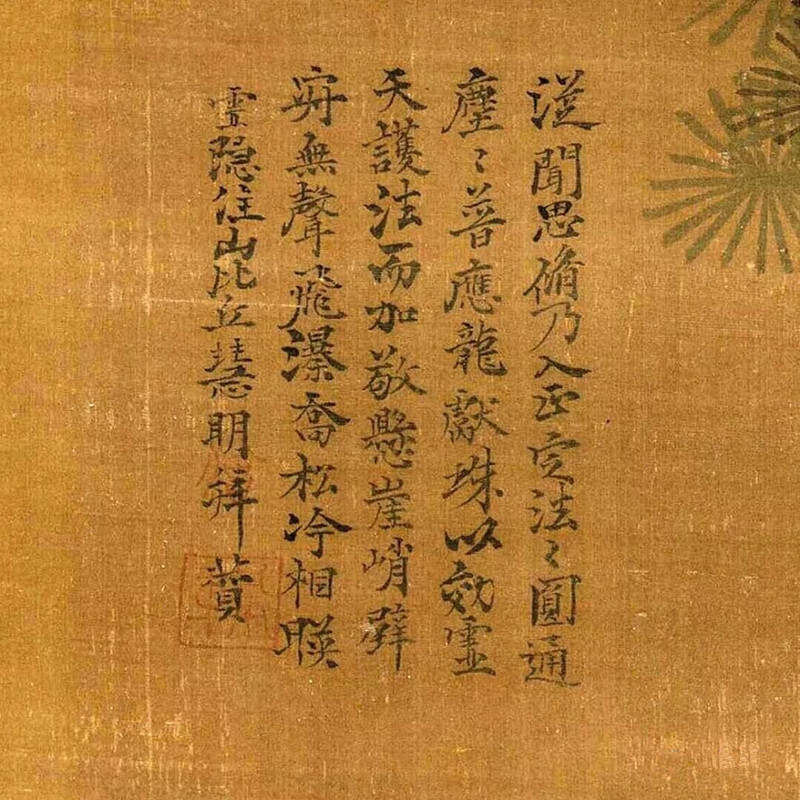 從聞思脩乃入正定法〻圓通
塵〻普應龍獻珠以効靈
天護法而加敬懸崖峭壁
寂無聲飛瀑喬松冷相暎
靈隠住山比丘慧明拜賛